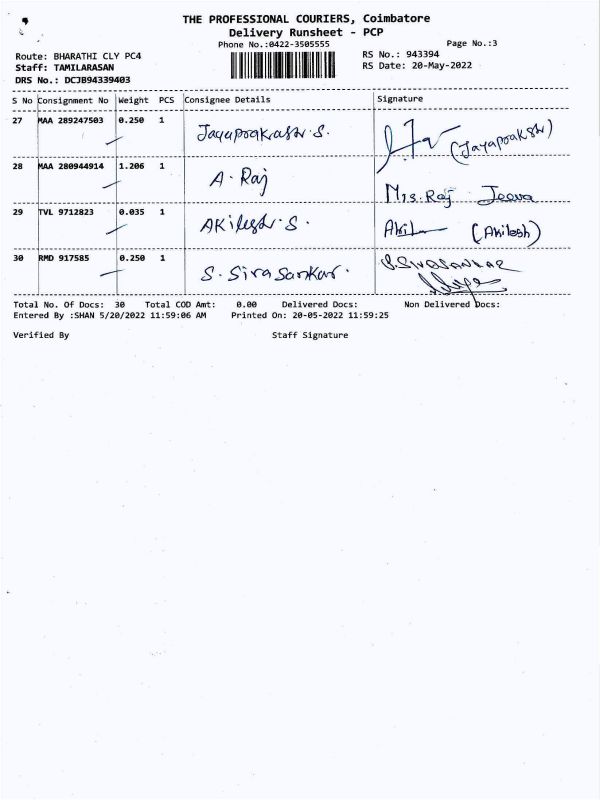 THE PROFESSIONAL COURIERS, Coimbatore
Delivery Runsheet - PCP
Phone No.:0422-3505555 Page No.:3
Route: BHARATHI CLY PC4 RS No.: 943394
Staff: TAMILARASAN RS Date: 20-May-2022
DRS No.: DCJB94339403
S No Consignment No Weight PCS Consignee Details Signature
27 MAA 289247503 0.250 1 Jayaprakash. S. (Jayaprakash)
28 MAA 280944914 1.206 1 A. Raj Mrs. Raj Jeeva
29 TVL 9712823 0.035 1 Akilesh. S. Akil (Akilesh)
30 RMD 917585 0.250 1 S. Siva Sankar. S. SIVASANKAR
Total No. Of Docs: 30 Total COD Amt: 0.00 Delivered Docs: Non Delivered Docs:
Entered By :SHAN 5/20/2022 11:59:06 AM Printed On: 20-05-2022 11:59:25
Verified By Staff Signature